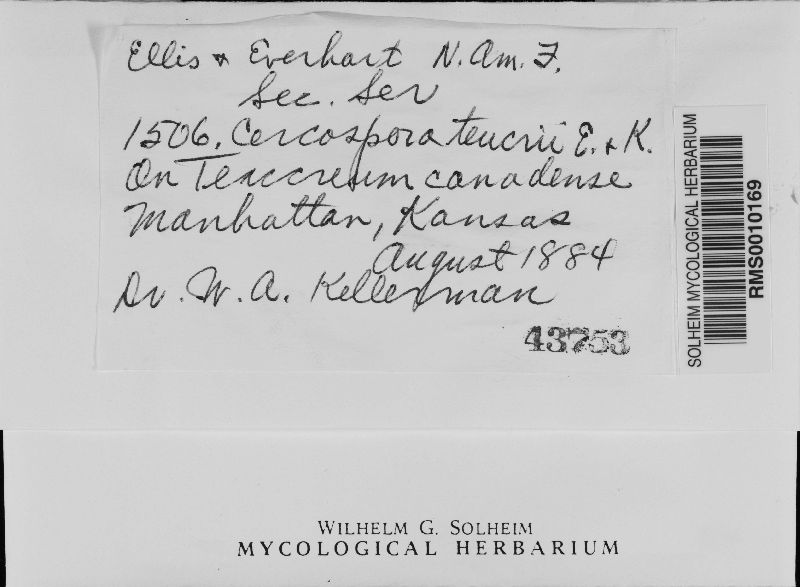 Ellis & Everhart N. Am. F.
Sec. Ser
1506. Cercospora teucrii E. & K.
On Teuccreum canadense
Manhattan, Kansas
August 1884
Dr. W. A. Kellerman
43753
SOLHEIM MYCOLOGICAL HERBARIUM
RMS0010169
WILHELM G. SOLHEIM
MYCOLOGICAL HERBARIUM